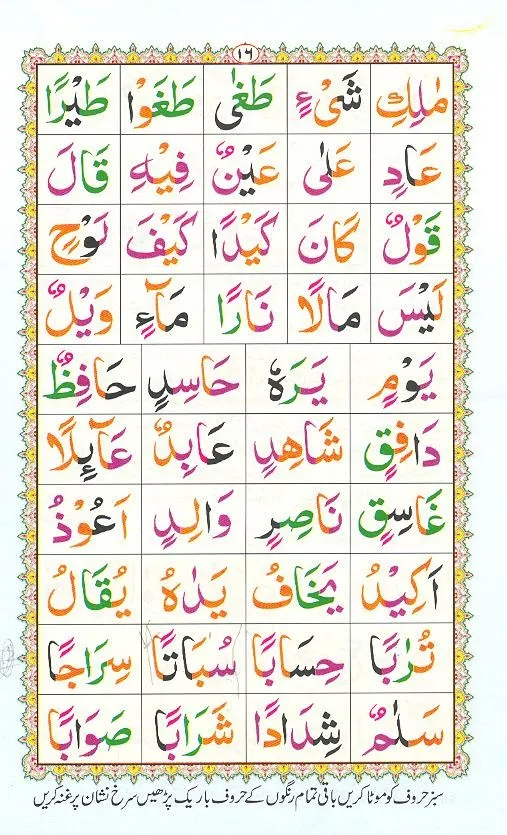 ١٦
مٰلِكِ شَیْءٍ طَغٰی طَغَوْا طَیْرًا
عَادٍ عَلٰی عَیْنٌ فِیْهِ قَالَ
قَوْلٌ كَانَ كَیْدًا كَیْفَ لَوْحٍ
لَیْسَ مَالًا نَارًا مَآءٍ وَیْلٌ
یَوْمٍ یَرَهٗ حَاسِدٍ حَافِظٌ
دَافِقٍ شَاهِدٍ عَابِدٌ عَآىِٕلًا
غَاسِقٍ نَاصِرٍ وَالِدٍ اَعُوْذُ
اَكِیْدُ یَخَافُ یَدٰهُ یُقَالُ
تُرٰبًا حِسَابًا سُبَاتًا سِرَاجًا
سَلٰمٌ شِدَادًا شَرَابًا صَوَابًا
سبز حروف کو موٹا کریں باقی تمام رنگوں کے حروف باریک پڑھیں سرخ نشان پر غنہ کریں